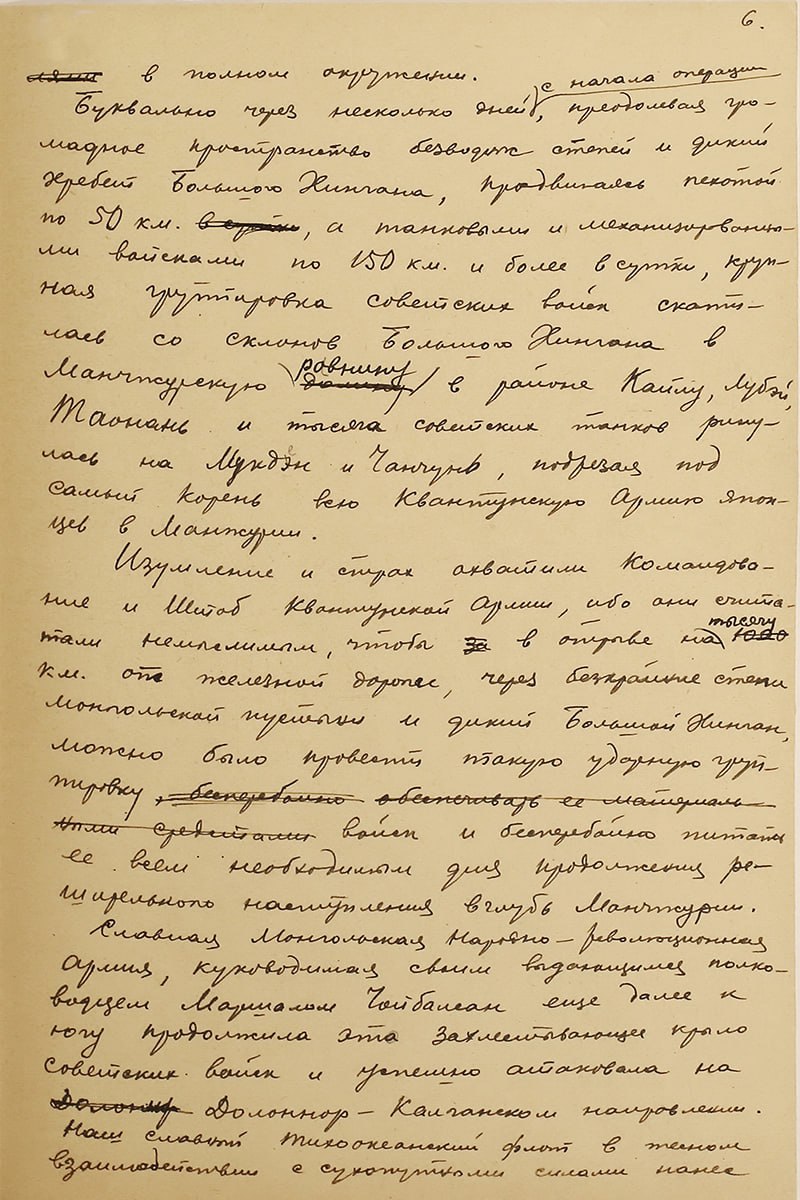 6.
лями в полном окружении.
с начала операции
Буквально через несколько дней, преодолевая гро-
мадное пространство безводных степей и дикий
хребет Большого Хингана, продвигаясь пехотой
по 50 км. в сутки, а танковыми и механизированны-
ми войсками по 150 км. и более в сутки, круп-
ная группировка советских войск скати-
лась со склонов Большого Хингана в
Манчжурскую равнину долину в районе Кайлу, Лубэй,
Таонань и тысяча советских танков рину-
лась на Мукдэн и Чанчунь, подрезая под
самый корень всю Квантунскую Армию япон-
цев в Манжурии.
Изумление и страх охватили Командова-
ние и Штаб Квантунской Армии, ибо они счита-
тысячу
тали немыслимым, чтобы за в отрыве на 1000
км. от железной дороги, через безкрайние степи
монгольской пустыни и дикий Большой Хинган,
можно было провести такую ударную груп-
пировку, бесперебойно обеспечивать ее материаль-
ными средствами войск и бесперебойно питать
ее всем необходимым для продолжения ре-
шительного наступления вглубь Манчжурии.
Славная Монгольская Народно-революционная
Армия, руководимая своим выдающимся полко-
водцем Маршалом Чойбалсан еще далее к
югу продолжила это захлестывающее крыло
советских войск и успешно атаковала на
Долоннор Долоннор-Калганском направлении.
Наш славный Тихоокеанский флот в тесном
взаимодействии с сухопутными силами нанес